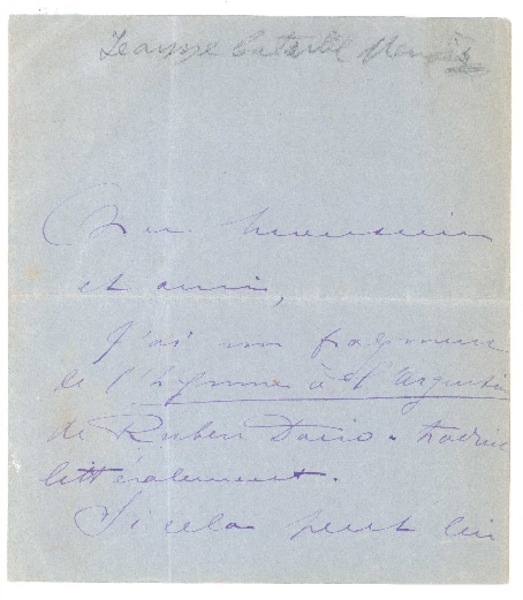 Jeanne
Monsieur
et ami,
J'ai un fragment
de l'Hymne à l'Argentine
de Ruben Dario - traduit
littéralement.
Si cela peut lui